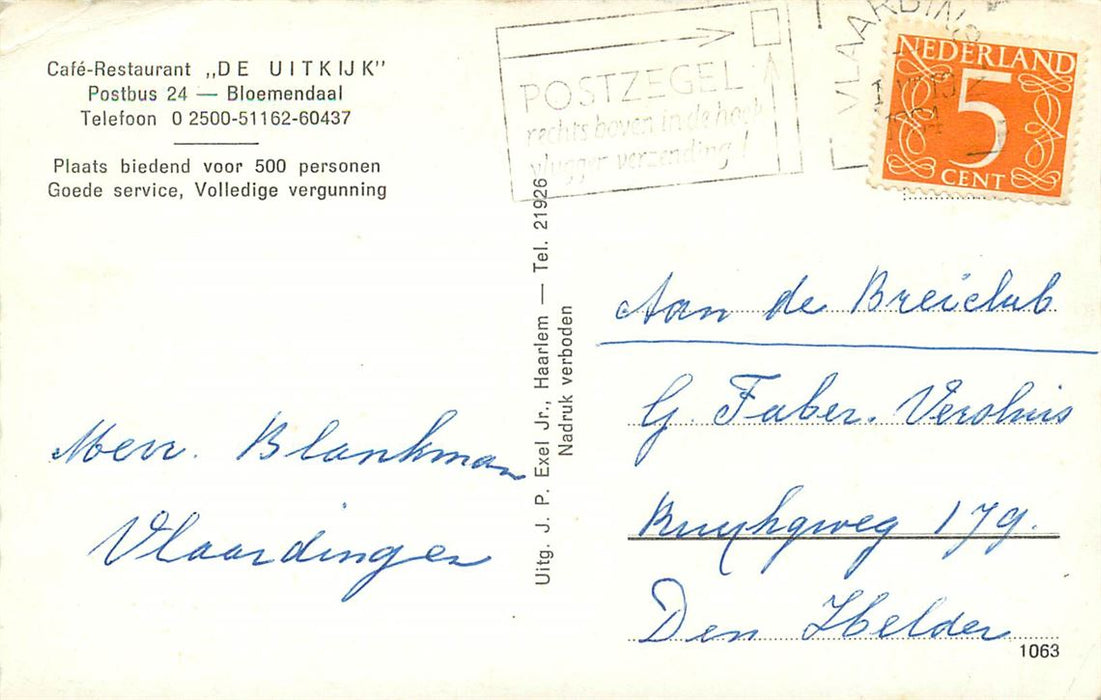 Café-Restaurant „DE UITKIJK”
Postbus 24 — Bloemendaal
Telefoon 0 2500-51162-60437
Plaats biedend voor 500 personen
Goede service, Volledige vergunning
Mevr. Blankman
Vlaardingen
Uitg. J. P. Exel Jr., Haarlem — Tel. 21926
Nadruk verboden
POSTZEGEL
rechts boven in de hoek
vlugger verzending!
VLAARDING
NEDERLAND
5
CENT
Aan de Breiclub
G. Faber.
179.
Den Helder
1063